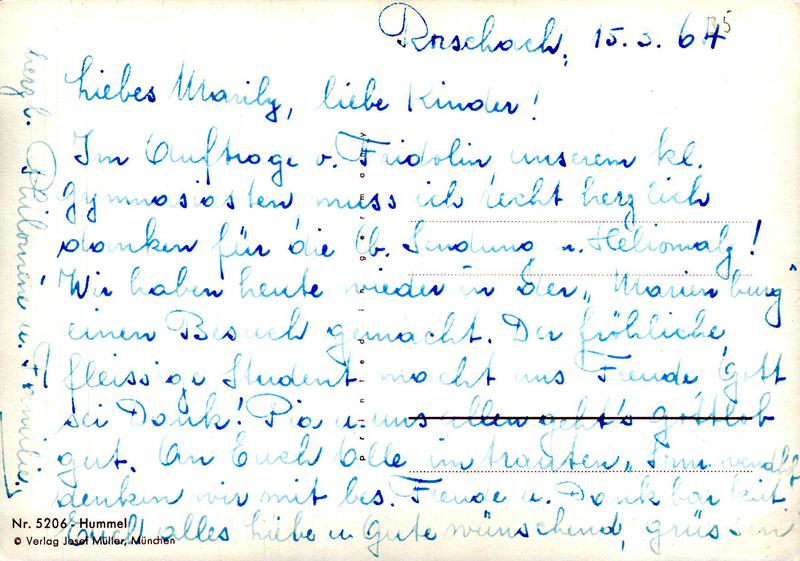 Rorschach, 15.3.64
Liebes Marily, liebe Kinder!
Im Auftrage v. Fridolin, unserem kl.
Gymnasiasten, muss ich recht herzlich
danken für die lb. Sendung u. Heliomalz!
Wir haben heute wieder in der "Marienburg"
einen Besuch gemacht. Der fröhliche,
fleissige Student macht uns Freude, Gott
sei Dank! Pia u. uns allen geht's gottlob
gut. An Euch Alle im trauten
denken wir mit bes. Freude u. Dankbarkeit
Euch alles Liebe u. Gute wünschend, grüssen
herzl. Philomena u. Familie
Printed in Germany
Nr. 5206 - Hummel
© Verlag Josef Müller, München